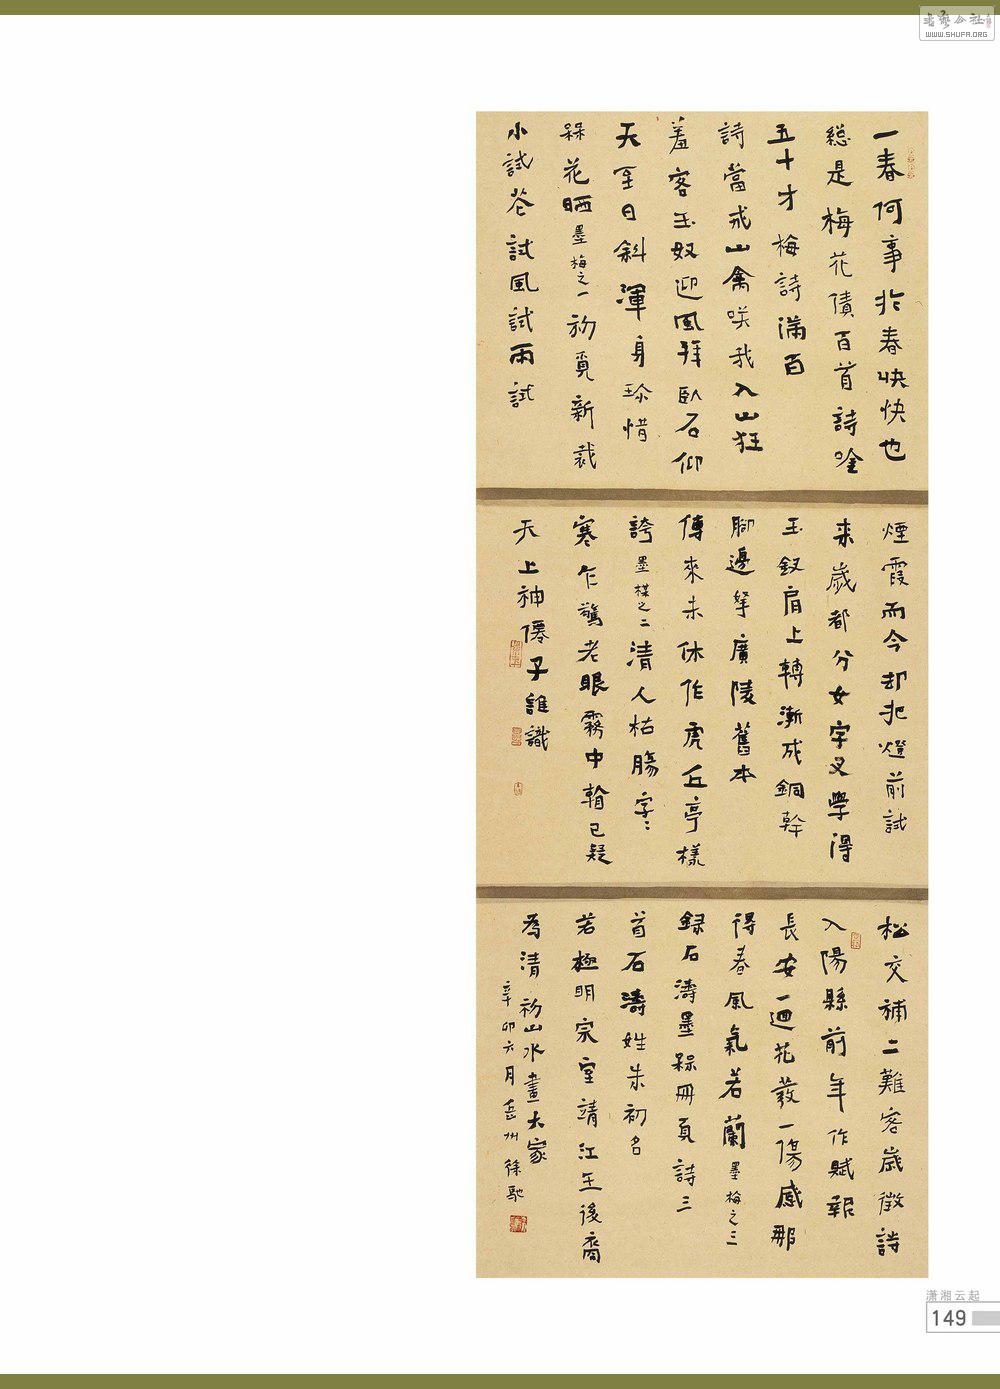 书艺公社
WWW.SHUFA.ORG
一春何事於春快快也
總是梅花債百首詩唫
五十才梅詩滿百
詩當戒山禽咲我入山狂
羞客玉奴迎風拜臥石仰
天至日斜渾身珎惜
槑花晒墨梅之一初覓新裁
小試花試風試雨試
煙霞而今却犯燈前試
来歲都分女字叉學得
玉釵肩上轉漸成銅幹
腳邊拏廣陵舊本
傳來未休作虎丘亭樣
誇墨楳之二清人枯腸字〻
寒乍驚老眼霧中翰已疑
天上神僊子誰識
松交補二難客歲徵詩
入陽縣前年作賦報
長安一迴花發一傷感那
得春風氣若蘭墨梅之三
録石濤墨槑冊頁詩三
首石濤姓朱初名
若極明宗室靖江王後裔
為清初山水畫大家
辛卯六月岳州徐馳
潇湘云起
149